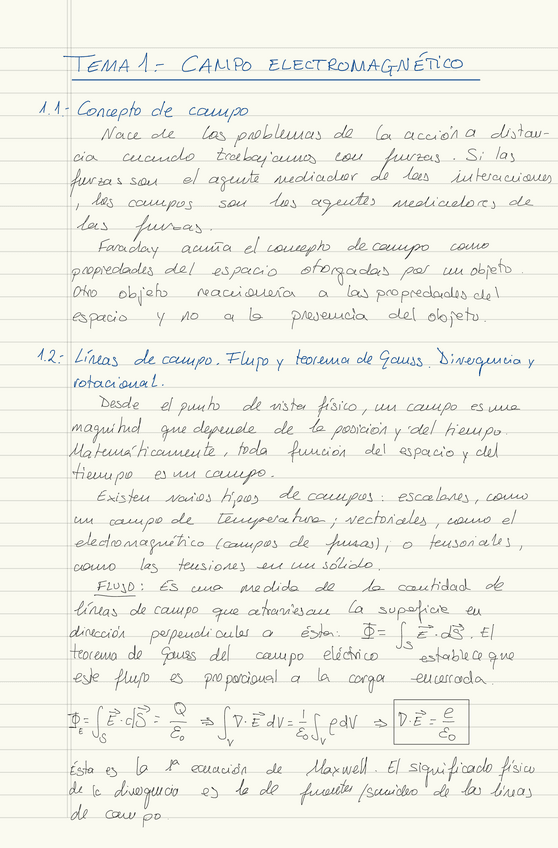 TEMA 1.- CAMPO ELECTROMAGNÉTICO
1.1.- Concepto de campo
Nace de los problemas de la acción a distan-
cia cuando trabajamos con fuerzas. Si las
fuerzas son el agente mediador de las interacciones
, los campos son los agentes mediadores de
las fuerzas.
Faraday acuña el concepto de campo como
propiedades del espacio otorgadas por un objeto.
Otro objeto reaccionaría a las propiedades del
espacio y no a la presencia del objeto.
1.2.- Líneas de campo. Flujo y teorema de Gauss. Divergencia y
rotacional.
Desde el punto de vista físico, un campo es una
magnitud que depende de la posición y del tiempo.
Matemáticamente, toda función del espacio y del
tiempo es un campo.
Existen varios tipos de campos: escalares, como
un campo de temperatura; vectoriales, como el
electromagnético (campos de fuerzas); o tensoriales,
como las tensiones en un sólido.
FLUJO: Es una medida de la cantidad de
líneas de campo que atraviesan la superficie en
dirección perpendicular a ésta: Φ = ∫_S E⃗·dS⃗. El
teorema de Gauss del campo eléctrico establece que
este flujo es proporcional a la carga encerrada.
Φ_E = ∫_S E⃗·dS⃗ = Q/ε₀ ⇒ ∫_V ∇·E⃗ dV = 1/ε₀ ∫_V ρ dV ⇒ ∇·E⃗ = ρ/ε₀
Ésta es la 1ª ecuación de Maxwell. El significado físico
de la divergencia es la de fuentes/sumideros de las líneas
de campo.